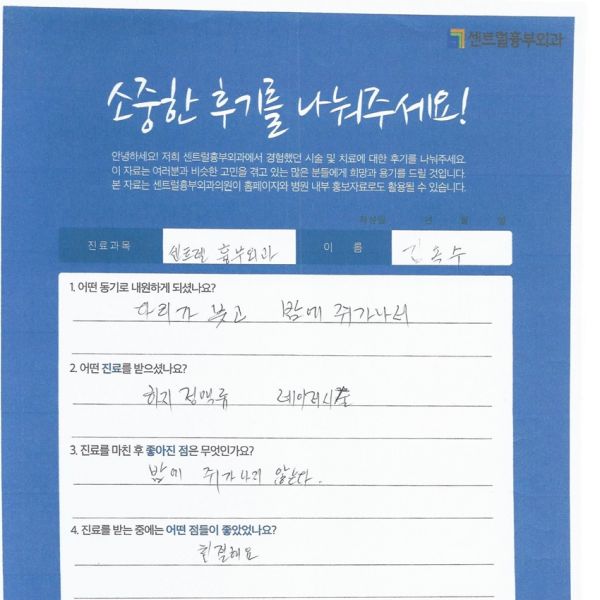 센트럴흉부외과
소중한 후기를 나눠주세요!
안녕하세요! 저희 센트럴흉부외과에서 경험했던 시술 및 치료에 대한 후기를 나눠주세요.
이 자료는 여러분과 비슷한 고민을 겪고 있는 많은 분들에게 희망과 용기를 드릴 것입니다.
본 자료는 센트럴흉부외과의원이 홈페이지와 병원 내부 홍보자료로도 활용될 수 있습니다.
작성일 년 월 일
진료과목 센트럴 흉부외과 이 름 김옥수
1. 어떤 동기로 내원하게 되셨나요?
다리가 붓고 밤에 쥐가나서
2. 어떤 진료를 받으셨나요?
하지 정맥류
3. 진료를 마친 후 좋아진 점은 무엇인가요?
밤에 쥐가나지 않는다.
4. 진료를 받는 중에는 어떤 점들이 좋았었나요?
친절해요